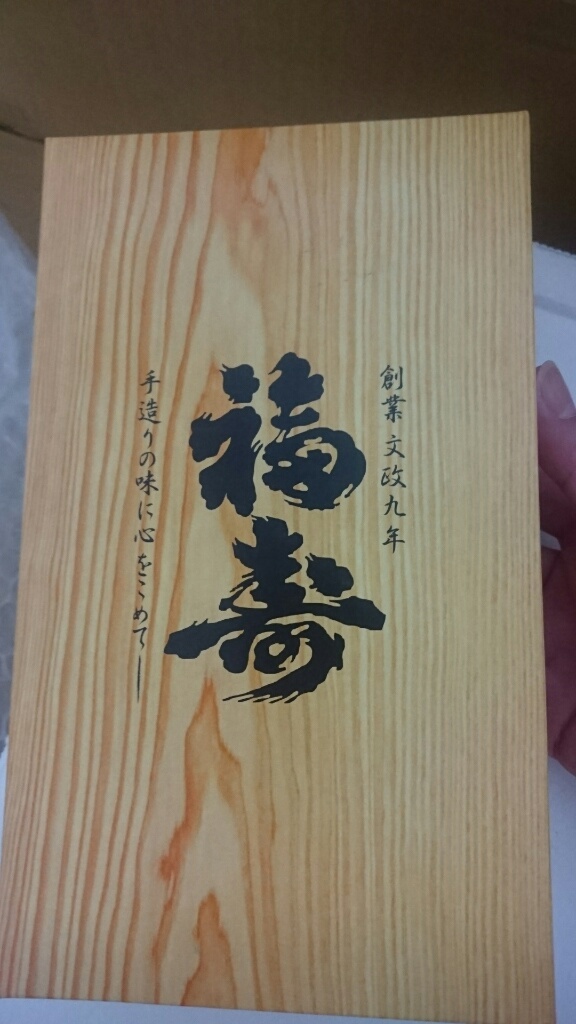 創業 文政九年
福寿
手造りの味に心をこめてー